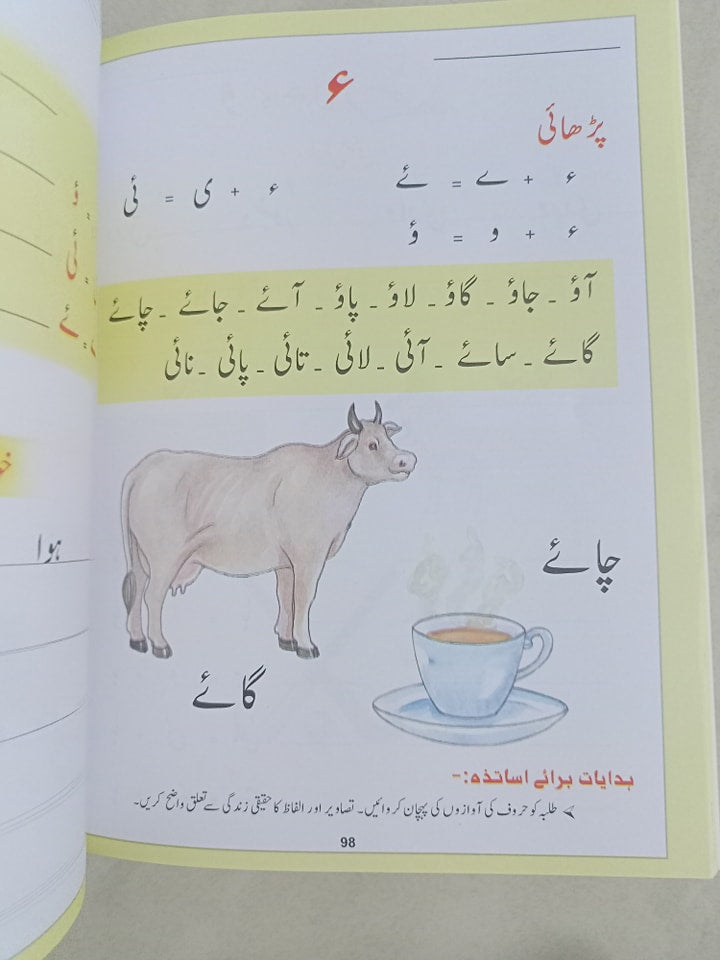 ء
پڑھائی
ء + ے = ئے
ء + ی = ئی
ء + و = ؤ
آؤ ۔ جاؤ ۔ گاؤ ۔ لاؤ ۔ پاؤ ۔ آئے ۔ جائے ۔ چائے
گائے ۔ سائے ۔ آئی ۔ لائی ۔ تائی ۔ پائی ۔ نائی
چائے
گائے
ہدایات برائے اساتذہ:-
طلبہ کو حروف کی آوازوں کی پہچان کروائیں۔ تصاویر اور الفاظ کا حقیقی زندگی سے تعلق واضح کریں۔
98
ؤ
ئی
ئے
ہوا